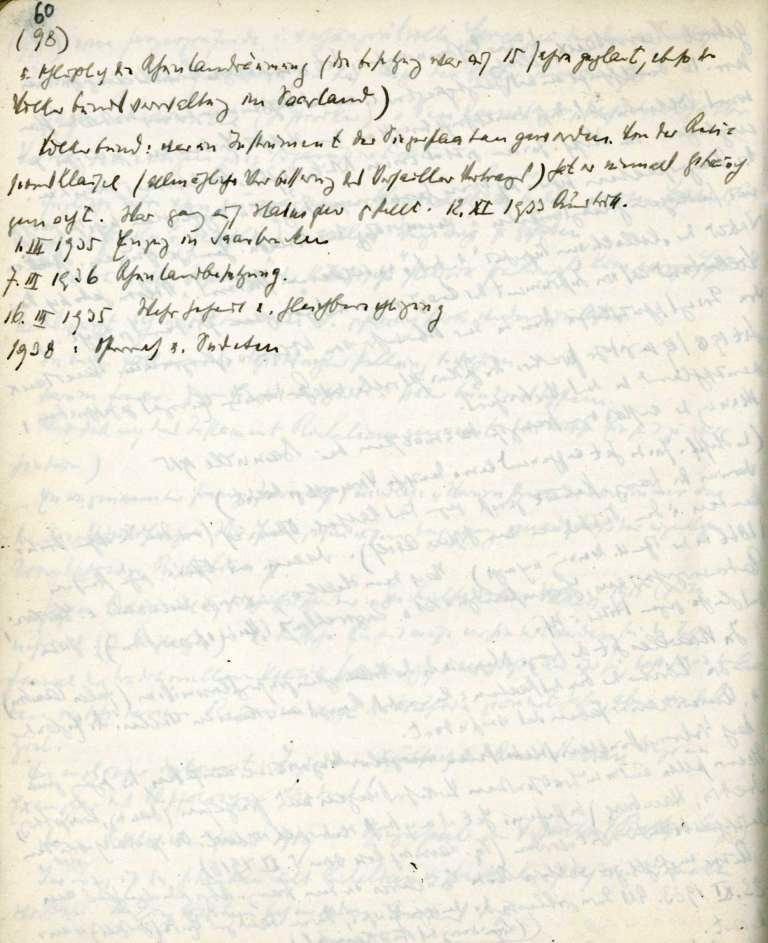 60
(98)
s. Rheinlandräumung (die Besetzung war auf 15 Jahre geplant, ebenso die
Völkerbundsverwaltung im Saarland)
Völkerbund: war ein Instrument der Siegerstaaten geworden. Von der Revi-
sionsklausel (allmähliche Verbesserung des Versailler Vertrages) hat er niemals Gebrauch
gemacht. War ganz auf Status quo gestellt. 12. XI 1933 Austritt.
1. III 1935 Einzug in Saarbrücken
7. III 1936 Rheinlandbesetzung.
16. III 1935 Wehrhoheit u. Gleichberechtigung
1938 : Österreich u. Sudeten